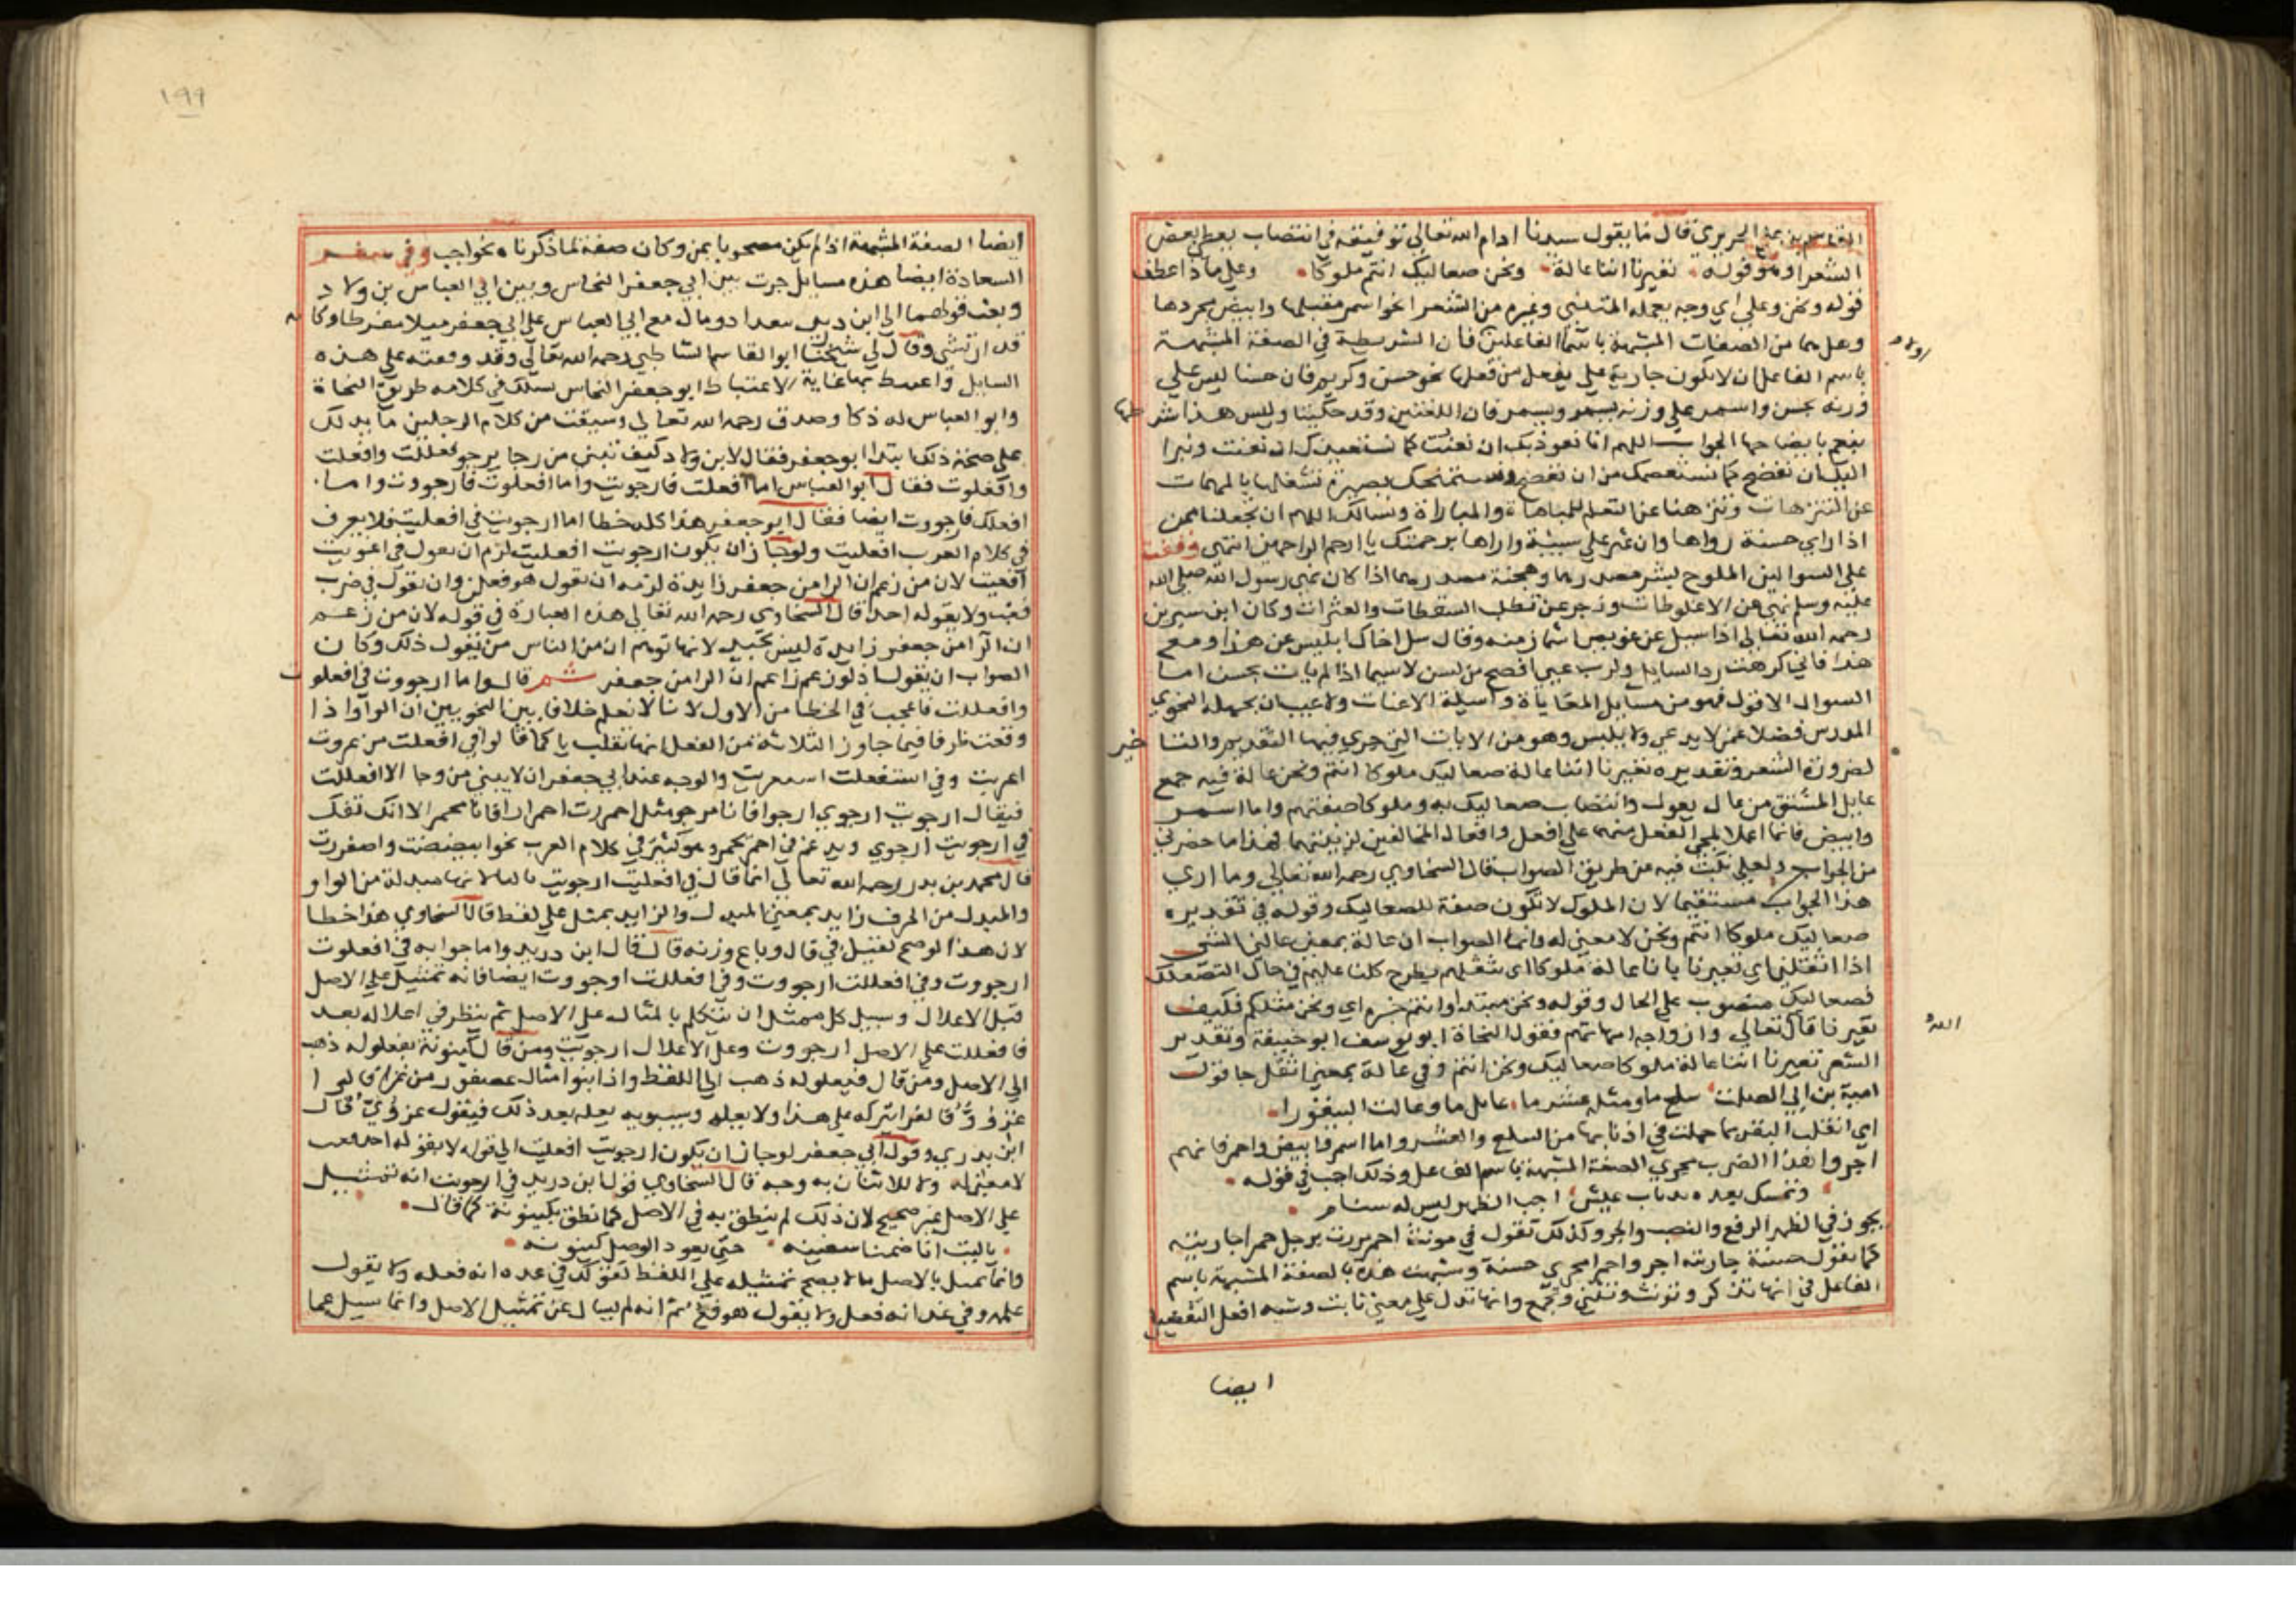 القاسم بن علي الحريري قال ما يقول سيدنا ادام الله تعالى توفيقه في انتصاب بعض
الشعراء وهو قوله تعيرنا اننا عالة ونحن صعاليك انتم ملوكا وعلى ماذا اعطف
قوله ونحن وعلى اي وجه يحمله المتنبي وغيره من الشعرا نحو اسمر مقبلها وابيض مجردها
وهل هما من الصفات المشبهة باسما الفاعلين فان الشريطة في الصفة المشبهة
باسم الفاعل ان لا تكون جارية على يفعل من فعلها نحو حسن وكريم فان حسنا ليس على
وزنه يحسن واسمر على وزنه يسمر ويسمر فان اللغتين وقد حكيتا وليس هذا شر طها
ينعم بايضاحها الجواب اللهم انا نعوذ بك ان نعنت كما نستعيذك ان نعنت ونبرا
اليك ان نفضح كما نستعصمك من ان نفضح ونستمنحك بصيرة تشغلها بالمهمات
عن الترهات وتنزهنا عن التعلم للمباهاة والمباراة ونسالك اللهم ان تجعلنا ممن
اذا راى حسنة رواها وان عثر على سيئة واراها برحمتك يا ارحم الراحمين انتهى وقفت
على السوالين الملوح بشر مصدرهما وهجنة مصدرهما اذا كان نهى رسول الله صلى الله
عليه وسلم نهى عن الاغلوطات وزجر عن تطلب السقطات والعثرات وكان ابن سيرين
رحمه الله تعالى اذا سيل عن عويص اشماز منه وقال سل اخاك ابليس عن هذا ومع
هذا فاني كرهت رد السايل ولرب عيي افصح من لسن لاسيما اذا لم يات بحسن اما
السوال الاول فهو من مسايل المعاياة واسيلة الاعنات ولا عيب ان يجهله النحوي
المدرس فضلا عمن لا يدعي ولا يلبس وهو من الابيات التي جرى فيها التقديم والتا خير
لضرورة الشعر وتقديره تعيرنا اننا عالة صعاليك ملوكا انتم ونحن عالة فيه جمع
عايل المشتق من عال يعول وانتصاب صعاليك به وملوكا صفتهم واما اسمر
وابيض فانما اعلا لمجي الفعل منهما على افعل وافعال المخالفين لزينتهما فهذا ما حضرني
من الجواب ولعلي نكبت فيه عن طريق الصواب قال السخاوي رحمه الله تعالى وما ارى
هذا الجواب مستقيما لان الملوك لا تكون صفة للصعاليك وقوله في تقديره
صعاليك ملوكا انتم ونحن لا معنى له وانما الصواب ان عالة بمعنى عالني الشي
اذا اثقلني اي تعيرنا بانا عالة ملوكا اي نثقلهم بطرح كلنا عليهم في حال التصعلك
فصعاليك منصوب على الحال وقوله ونحن مبتدا وانتم خبره اي ونحن مثلكم فكيف
تعيرنا قال تعالى وازواجه امهاتهم فقول النحاة ابو يوسف ابو حنيفة وتقدير
الشعر تعيرنا اننا عالة ملوكا صعاليك ونحن انتم وفي عالة بمعنى اثقل جا قول
امية بن ابي الصلت سلع ما ومثله عشر ما عايل ما وعالت البيقورا
اي اثقلت البقر بما حملت في اذنابها من السلع والعشر واما اسمر وابيض واحمر فانهم
اجروا هذا الضرب مجرى الصفة المشبهة باسم الفاعل وذلك اجب في قوله
ونمسك بعده بذناب عيش اجب الظهر ليس له سنام
يجوز في الظهر الرفع والنصب والجر وكذلك تقول في مونث احمر مررت برجل حمرا جاريته
كما تقول حسنة جاريته اجروا حمرا مجرى حسنة وشبهت هذه بالصفة المشبهة باسم
الفاعل في انها تذكر وتونث وتثنى وتجمع وانها تدل على معنى ثابت وشبه افعل التفضيل
ايضا
الله
١٩٩
ايضا الصفة المشبهة اذا لم يكن مصحوبا بمن وكان صفة لما ذكرناه نحو اجب وفي سفر
السعادة ايضا هذه مسايل جرت بين ابي جعفر النحاس وبين ابي العباس بن ولاد
وبعث قولهما الى ابن بدر ببغداد ومال مع ابي العباس على ابي جعفر ميلا مفرطا وكا نه
قد ارتشى وقال لي شيخنا ابو القاسم الشاطبي رحمه الله تعالى وقد وقفته على هذه
المسايل واغتبط بها غاية الاغتباط ابو جعفر النحاس يسلك في كلامه طريق النحاة
وابو العباس له ذكا وصدق رحمه الله تعالى وسيقت من كلام الرجلين ما يدلك
على صحة ذلك ابتدا ابو جعفر فقال لابن ولاد كيف تبني من رجا يرجو افعللت وافعلت
وافعلوت فقال ابو العباس اما افعلت فارجويت واما افعلوت فارجووت واما
افعلل فارجووت ايضا فقال ابو جعفر هذا كله خطا اما ارجويت في افعليت فلا يعرف
في كلام العرب افعليت ولو جاز ان يكون ارجويت افعليت لزم ان يقول في اغزيت
افعيت لان من زعم ان الرا من جعفر زايدة لزمه ان يقول هو فعلر وان يقول في ضرب
فعب ولا يقوله احد قال السخاوي رحمه الله تعالى هذه العبارة في قوله لان من زعم
ان الرا من جعفر زايدة ليس بجيد لانها توهم ان من الناس من يقول ذلك وكان
الصواب ان يقول اذ لو زعم زاعم ان الرا من جعفر ثم قال واما ارجووت في افعلو ت
وافعللت فاعجب في الخطا من الاول لانا لا نعلم خلافا بين النحويين ان الواو اذا
وقعت طرفا فيما جاوز الثلاثة من الفعل انها تقلب يا كما قالوا في افعلت من غزوت
اغزيت وفي استفعلت استغزيت والوجه عند ابي جعفر ان لا يبنى من رجا الا افعللت
فيقال ارجويت ارجوي ارجوا فانا مرجو مثل احمررت احمرارا فانا محمر الا انك تفك
في ارجويت ارجوي ويدغم في احمر يحمر وهو كثير في كلام العرب نحو ابيضضت واصفررت
قال محمد بن بدر رحمه الله تعالى انما قال في افعليت ارجويت بالياء لانها مبدلة من الواو
والمبدل من الحرف زايد بمعنى المبدل والزايد يمثل على لفظ قال السخاوي هذا خطا
لان هذا لو صح لقيل في قال وباع وزنه قال قال ابن دريد واما جوابه في افعلوت
ارجووت وفي افعللت ارجووت وفي افعللت ارجووت ايضا فانه تمثيل على الاصل
قبل الاعلال وسبيل كل ممثل ان يتكلم بالمثال على الاصل ثم ينظر في اعلاله بعد
فافعللت على الاصل ارجووت وعلى الاعلال ارجويت ومن قال كينونة فيعلولة ذهب
الى الاصل ومن قال فيعلولة ذهب الى اللفظ واذا بنوا مثال عصفور من غزا قالوا
غزووٌ فالفرا يتركه على هذا ولا يعله وسيبويه يعله بعد ذلك فيقول غزويٌّ قال
ابن بدر وقول ابي جعفر لو جاز ان يكون ارجويت افعليت الى قوله لا يقوله احد فعب
لا معنى له ولا للاتيان به وجه قال السخاوي قول ابن دريد في ارجووت انه تمثيل
على الاصل غير صحيح لان ذلك لم ينطق به في الاصل كما نطق بكينونة كما قال
يا ليت انا ضمنا سفينه حتى يعود الوصل كينونه
وانما يمثل بالاصل ما لا يصح تمثيله على اللفظ كقولك في عده انه فعله ولا يقول
عله وفي غد انه فعل ولا يقول هو فع ثم انه لم يسال عن تمثيل الاصل وانما سيل عما